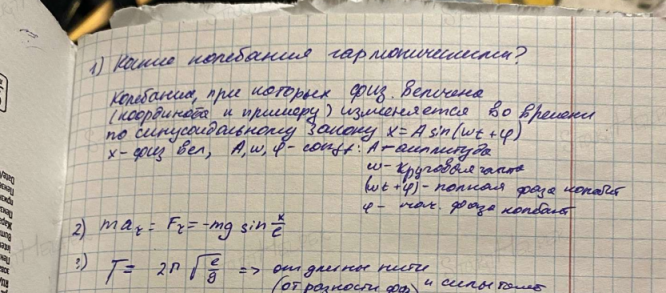 1) Какие колебания гармонические?
Колебания, при которых физ. величена
(координата к примеру) изменяется во времени
по синусоидальному закону x = A sin(ωt + φ)
x - физ вел, A, ω, φ - const: A - амплитуда
ω - круговая частота
(ωt + φ) - полная фаза колебат
φ - нач. фаза колебат
2) ma_τ = F_τ = -mg sin x/ℓ
3) T = 2π √(ℓ/g) => от длины нити
(от разности и силы